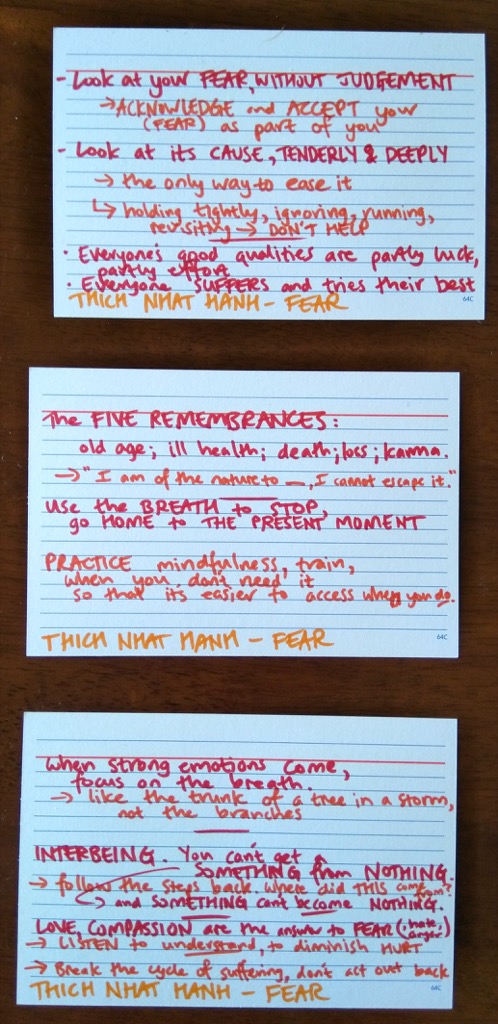 - Look at your FEAR, WITHOUT JUDGEMENT
→ ACKNOWLEDGE and ACCEPT your
(FEAR) as part of you
- Look at its CAUSE, TENDERLY & DEEPLY
→ the only way to ease it
↳ holding tightly, ignoring, running,
revisiting → DON'T HELP
· Everyone's good qualities are partly luck,
partly effort
· Everyone SUFFERS and tries their best
THICH NHAT HANH - FEAR
64C
The FIVE REMEMBRANCES:
old age; ill health; death; loss; karma.
→ "I am of the nature to —, I cannot escape it."
Use the BREATH to STOP,
go HOME to THE PRESENT MOMENT
PRACTICE mindfulness, train,
when you don't need it
so that its easier to access when you do.
THICH NHAT HANH - FEAR
64C
When strong emotions come,
focus on the breath.
→ like the trunk of a tree in a storm,
not the branches
INTERBEING. You can't get
SOMETHING from NOTHING.
→ follow the steps back. Where did THIS come from?
↳ and SOMETHING can't become NOTHING.
LOVE, COMPASSION are the answer to FEAR (, hate, anger)
→ LISTEN to understand, to diminish HURT
→ Break the cycle of suffering, don't act out back
THICH NHAT HANH - FEAR
64C